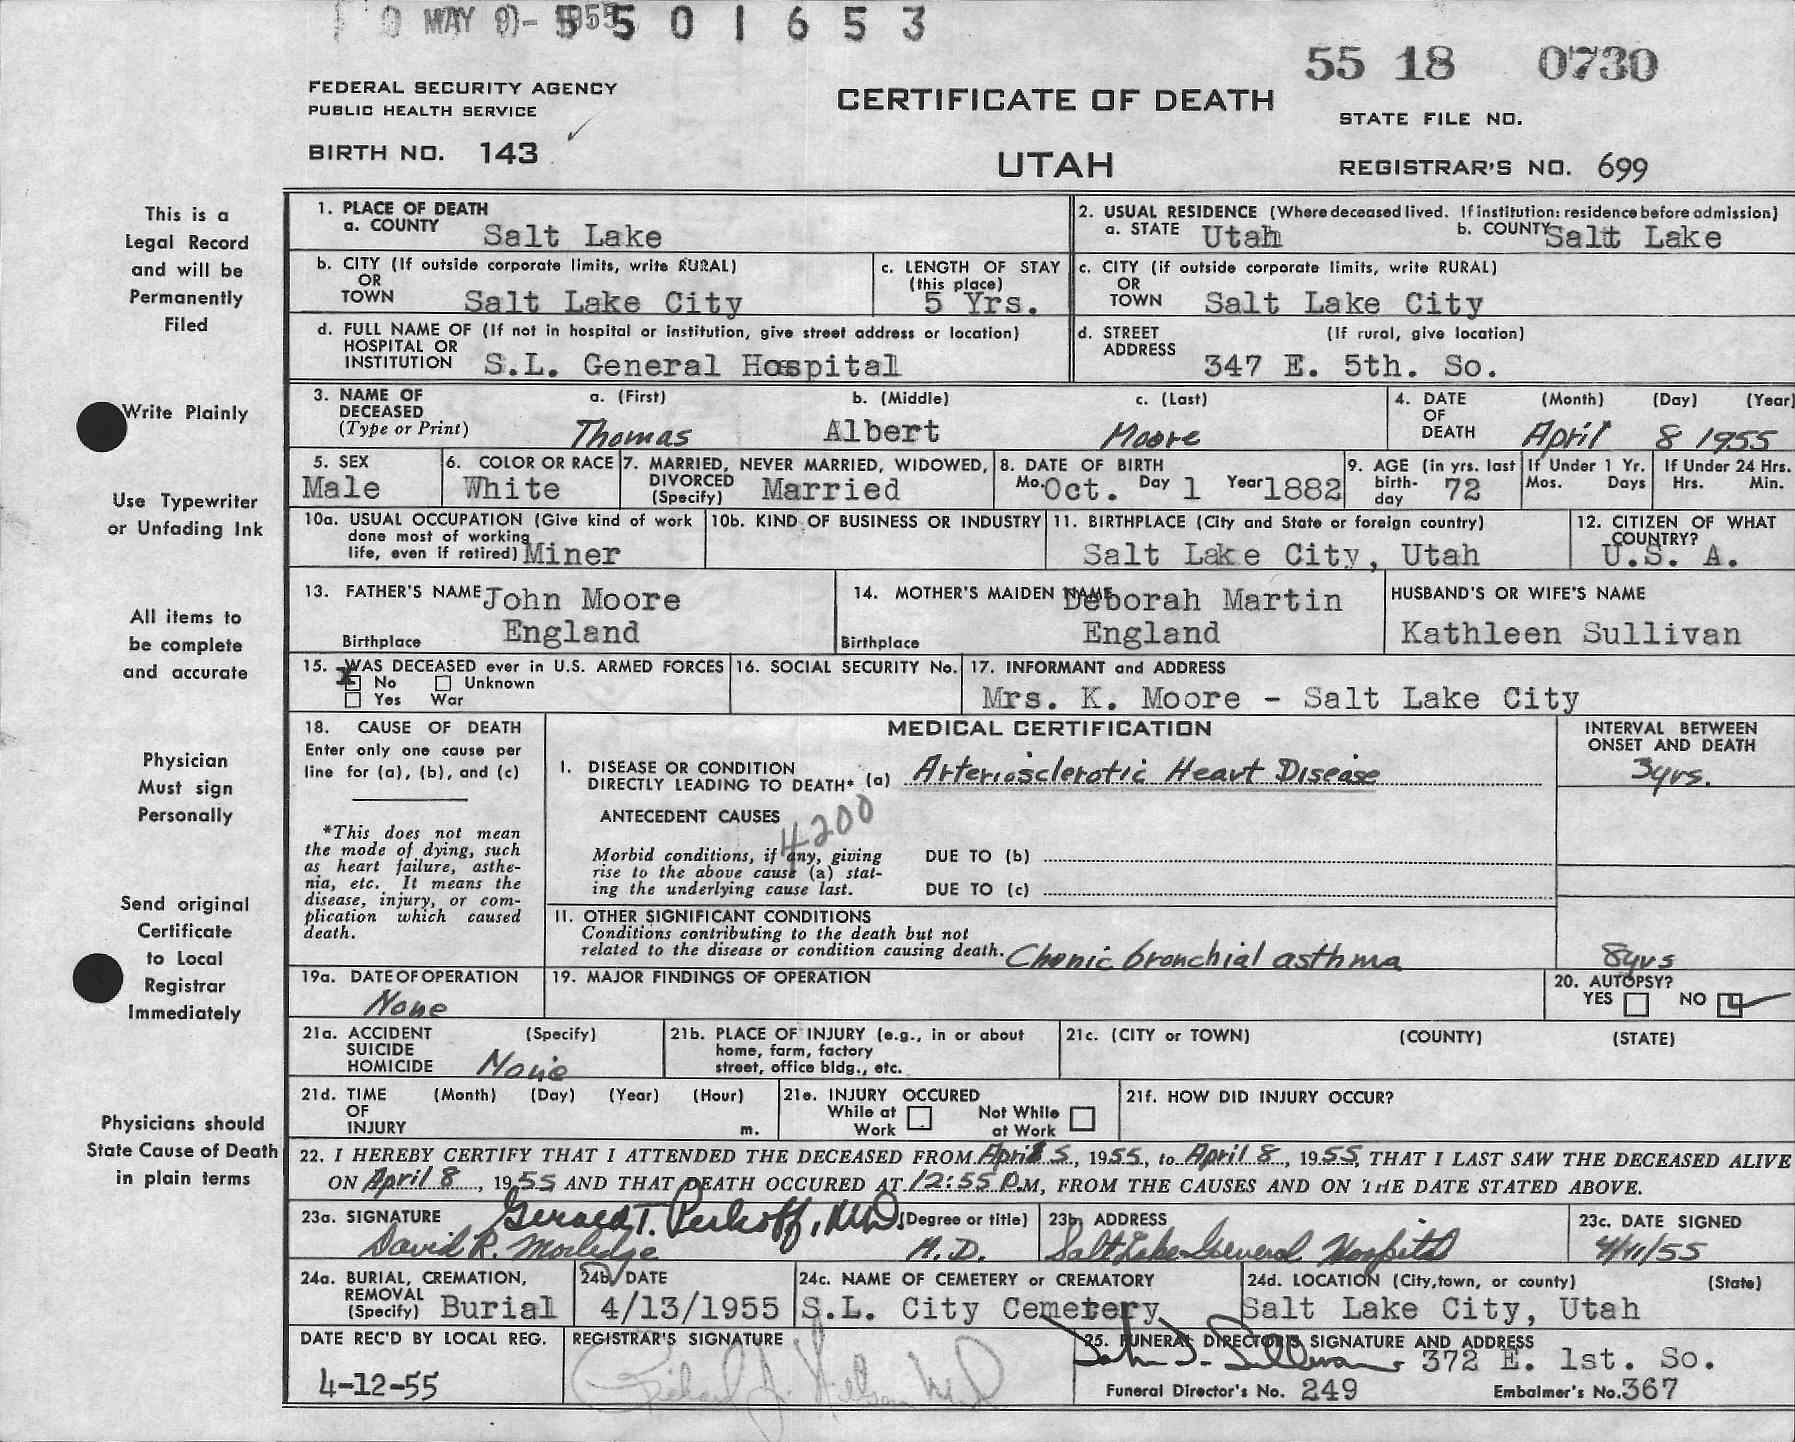 MAY 9 - 1955
5501653
55 18 0730
FEDERAL SECURITY AGENCY
PUBLIC HEALTH SERVICE
CERTIFICATE OF DEATH
STATE FILE NO.
BIRTH NO. 143
UTAH
REGISTRAR'S NO. 699
This is a
Legal Record
and will be
Permanently
Filed
Write Plainly
Use Typewriter
or Unfading Ink
All items to
be complete
and accurate
Physician
Must sign
Personally
Send original
Certificate
to Local
Registrar
Immediately
Physicians should
State Cause of Death
in plain terms
1. PLACE OF DEATH
a. COUNTY Salt Lake
2. USUAL RESIDENCE (Where deceased lived. If institution: residence before admission)
a. STATE Utah b. COUNTY Salt Lake
b. CITY (If outside corporate limits, write RURAL)
OR
TOWN Salt Lake City
c. LENGTH OF STAY
(this place)
5 Yrs.
c. CITY (if outside corporate limits, write RURAL)
OR
TOWN Salt Lake City
d. FULL NAME OF (If not in hospital or institution, give street address or location)
HOSPITAL OR
INSTITUTION S.L. General Hospital
d. STREET (If rural, give location)
ADDRESS 347 E. 5th. So.
3. NAME OF a. (First) b. (Middle) c. (Last)
DECEASED
(Type or Print) Thomas Albert Moore
4. DATE (Month) (Day) (Year)
OF
DEATH April 8 1955
5. SEX
Male
6. COLOR OR RACE
White
7. MARRIED, NEVER MARRIED, WIDOWED,
DIVORCED
(Specify) Married
8. DATE OF BIRTH
Mo. Oct. Day 1 Year 1882
9. AGE (in yrs. last
birth-
day 72
If Under 1 Yr.
Mos. Days
If Under 24 Hrs.
Hrs. Min.
10a. USUAL OCCUPATION (Give kind of work
done most of working
life, even if retired) Miner
10b. KIND OF BUSINESS OR INDUSTRY
11. BIRTHPLACE (City and State or foreign country)
Salt Lake City, Utah
12. CITIZEN OF WHAT
COUNTRY?
U.S. A.
13. FATHER'S NAME John Moore
Birthplace England
14. MOTHER'S MAIDEN NAME Deborah Martin
Birthplace England
HUSBAND'S OR WIFE'S NAME
Kathleen Sullivan
15. WAS DECEASED ever in U.S. ARMED FORCES
X No Unknown
Yes War
16. SOCIAL SECURITY No.
17. INFORMANT and ADDRESS
Mrs. K. Moore - Salt Lake City
18. CAUSE OF DEATH
Enter only one cause per
line for (a), (b), and (c)
*This does not mean
the mode of dying, such
as heart failure, asthe-
nia, etc. It means the
disease, injury, or com-
plication which caused
death.
MEDICAL CERTIFICATION
INTERVAL BETWEEN
ONSET AND DEATH
I. DISEASE OR CONDITION
DIRECTLY LEADING TO DEATH* (a) Arteriosclerotic Heart Disease
3yrs.
ANTECEDENT CAUSES
4200
Morbid conditions, if any, giving
rise to the above cause (a) stat-
ing the underlying cause last.
DUE TO (b)
DUE TO (c)
II. OTHER SIGNIFICANT CONDITIONS
Conditions contributing to the death but not
related to the disease or condition causing death. Chonic bronchial asthma
8yrs
19a. DATE OF OPERATION
None
19. MAJOR FINDINGS OF OPERATION
20. AUTOPSY?
YES NO
21a. ACCIDENT (Specify)
SUICIDE
HOMICIDE None
21b. PLACE OF INJURY (e.g., in or about
home, farm, factory
street, office bldg., etc.
21c. (CITY or TOWN) (COUNTY) (STATE)
21d. TIME (Month) (Day) (Year) (Hour)
OF
INJURY m.
21e. INJURY OCCURED
While at Work Not While at Work
21f. HOW DID INJURY OCCUR?
22. I HEREBY CERTIFY THAT I ATTENDED THE DECEASED FROM April 5, 1955, to April 8, 1955, THAT I LAST SAW THE DECEASED ALIVE
ON April 8, 1955 AND THAT DEATH OCCURED AT 12:55 P.M, FROM THE CAUSES AND ON THE DATE STATED ABOVE.
23a. SIGNATURE Gerald T. Perkoff, M.D. (Degree or title)
David R. M.D.
23b. ADDRESS
Salt Lake General Hospital
23c. DATE SIGNED
4/11/55
24a. BURIAL, CREMATION,
REMOVAL
(Specify) Burial
24b. DATE
4/13/1955
24c. NAME OF CEMETERY or CREMATORY
S.L. City Cemetery
24d. LOCATION (City, town, or county) (State)
Salt Lake City, Utah
DATE REC'D BY LOCAL REG.
4-12-55
REGISTRAR'S SIGNATURE
Richard J.
25. FUNERAL DIRECTOR'S SIGNATURE AND ADDRESS
John J. Sullivan 372 E. 1st. So.
Funeral Director's No. 249 Embalmer's No. 367